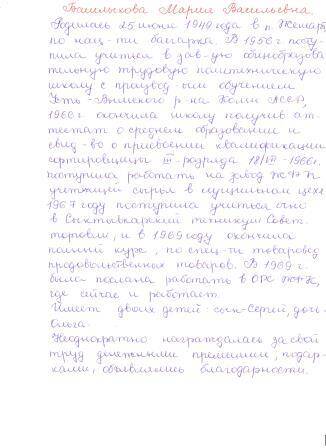 Башлыкова Мария Васильевна
Родилась 25 июня 1949 года в п. Жешарт
по нац-ти болгарка. В 1956 г посту-
пила учиться в зав-ую общеобразова
тельную трудовую политехническую
школу с производ-ым обучением
Усть-Вымского р-на Коми АССР,
1966 г. окончила школу получив ат-
тестат о среднем образовании и
свид-во о присвоении квалификации
сортировщицы III-разряда 18/VI-1966г.
поступила работать на завод ЖФК
учётчицей сырья в лущильном цехе
1967 году поступила учиться очно
в Сыктывкарский техникум Совет.
торговли, и в 1969 году окончила
полный курс, по спец-ти товаровед
продовольственных товаров. В 1969 г.
была послана работать в ОРС ЖФК,
где сейчас и работает.
Имеет двоих детей: сын-Сергей, дочь-
Ольга.
Неоднократно награждалась за свой
труд денежными премиями, подар-
ками, объявлялись благодарности.